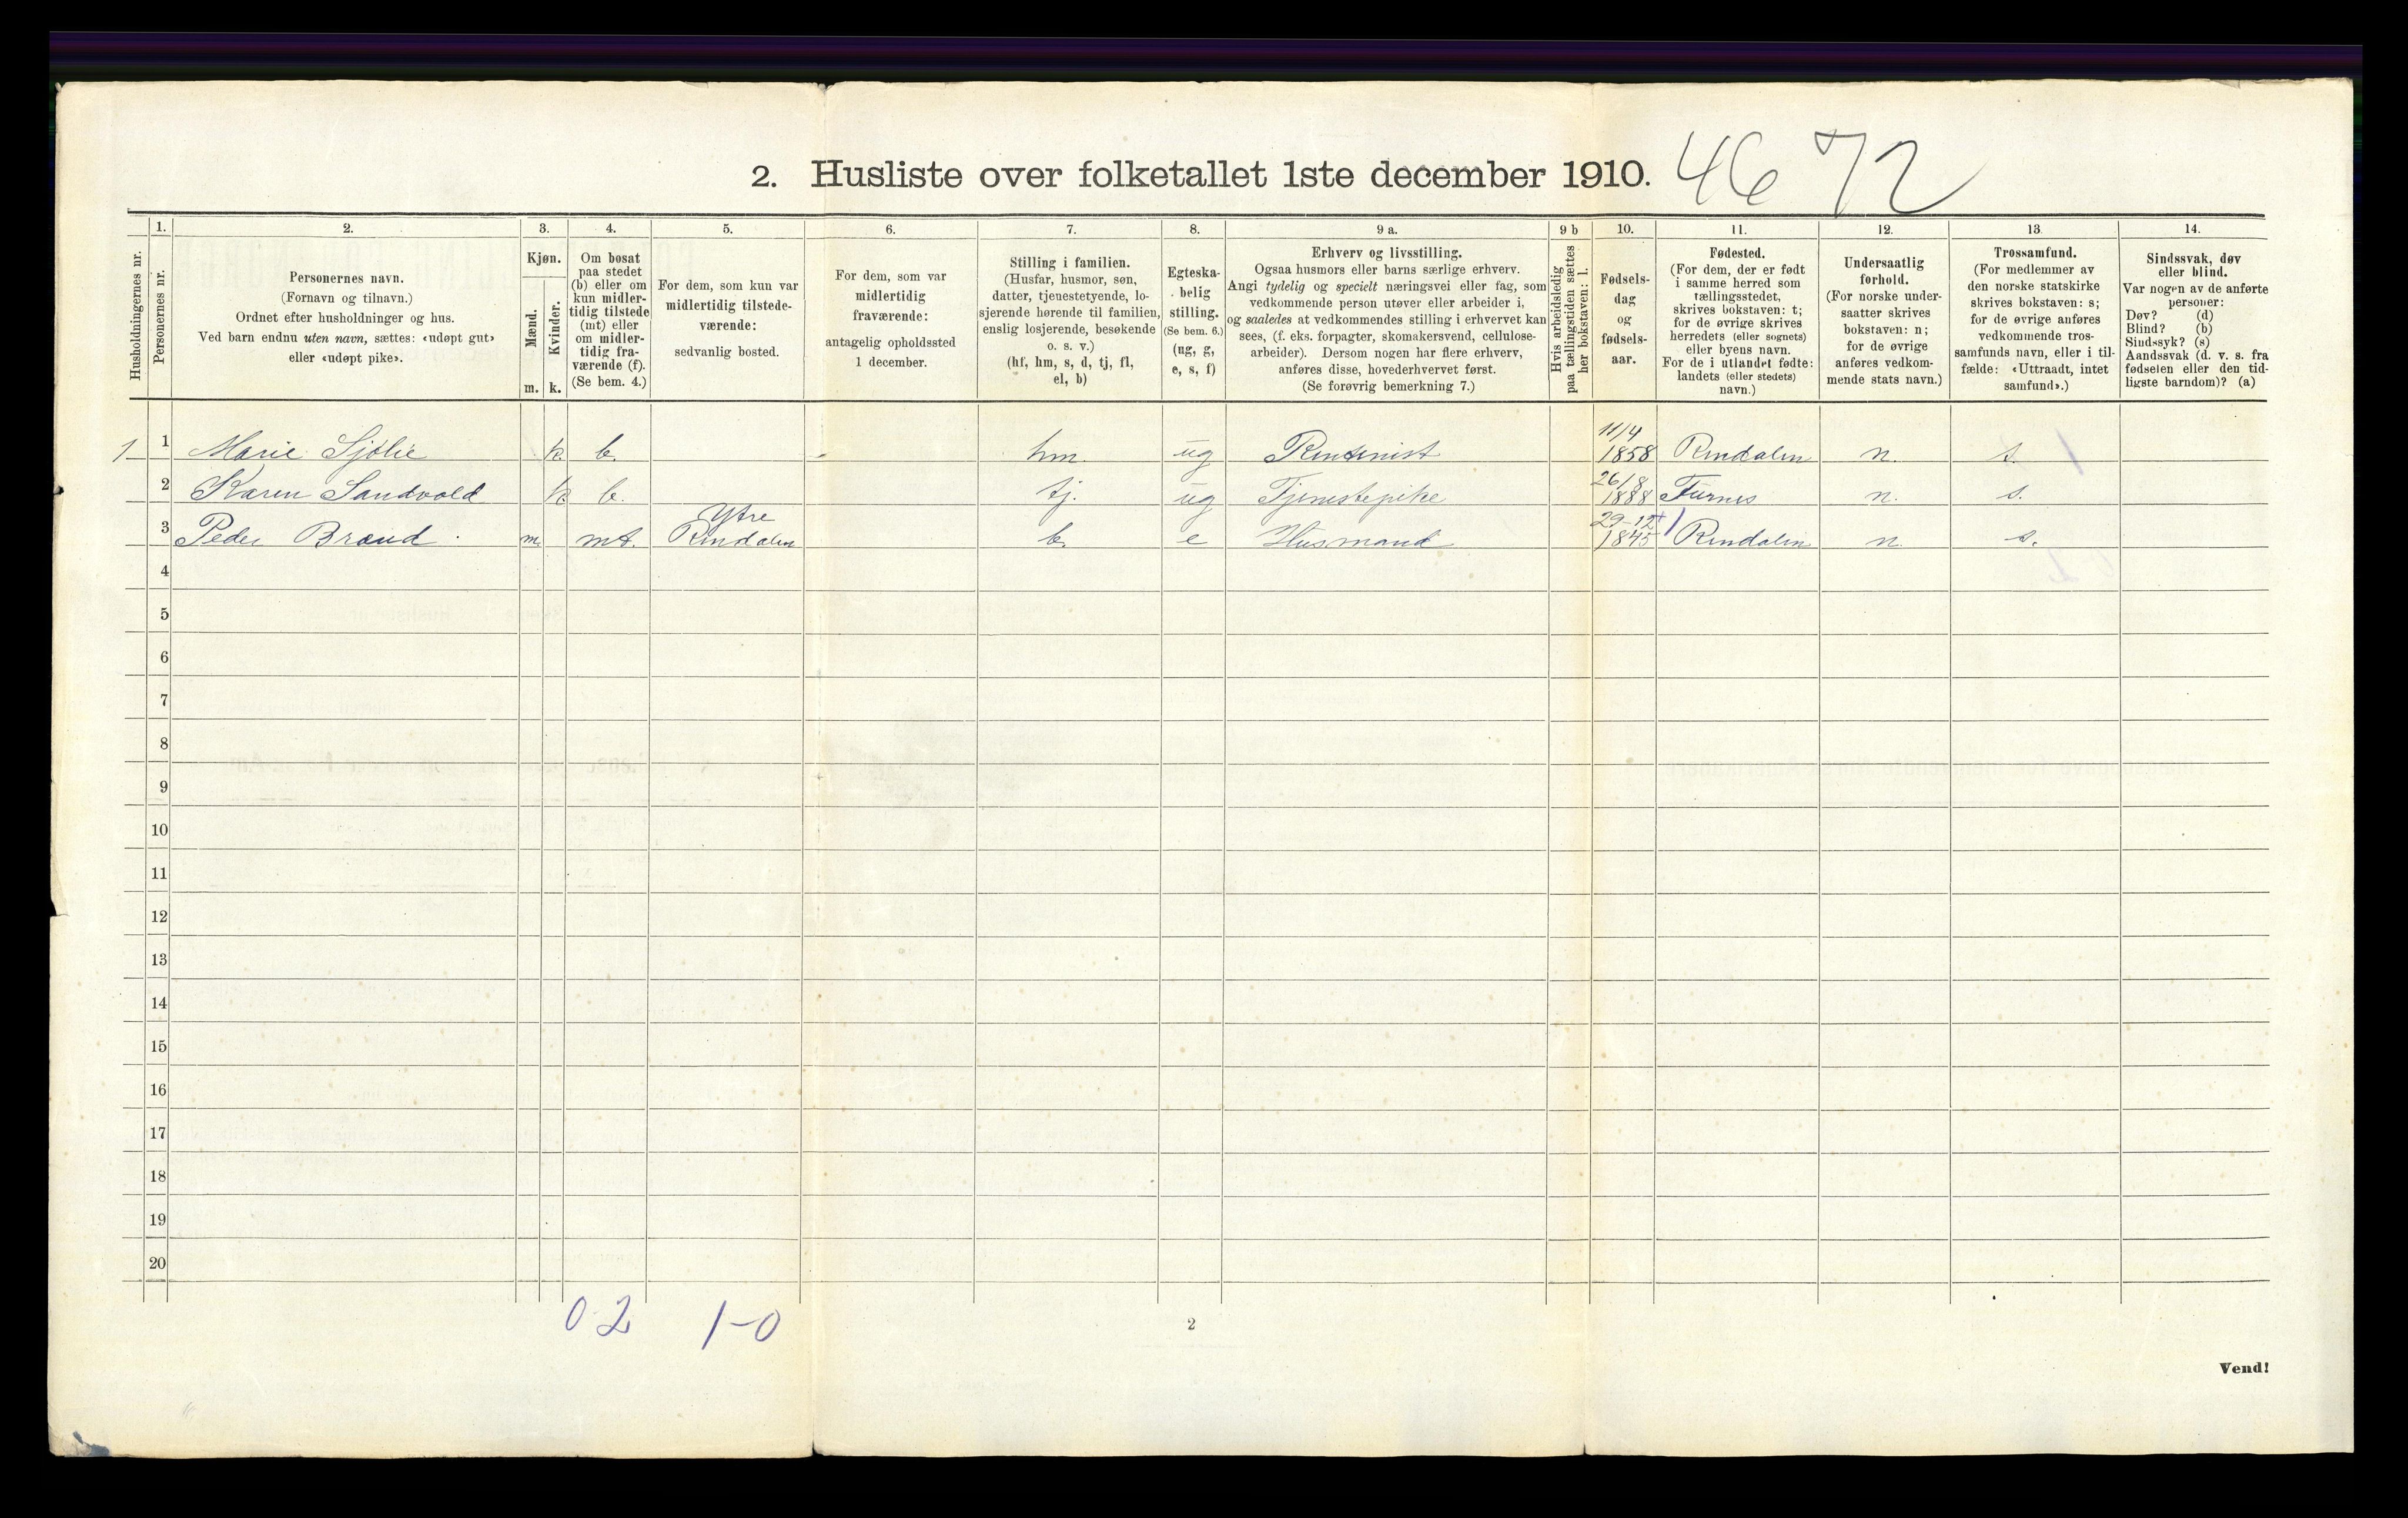 2. Husliste over folketallet 1ste december 1910. 46 72
1. 2. 3. 4. 5. 6. 7. 8. 9 a. 9 b 10. 11. 12. 13. 14.
Husholdningernes nr.
Personernes nr.
Personernes navn.
(Fornavn og tilnavn.)
Ordnet efter husholdninger og hus.
Ved barn endnu uten navn, sættes: «udøpt gut»
eller «udøpt pike».
Kjøn.
Mænd.
Kvinder.
m. k.
Om bosat
paa stedet
(b) eller om
kun midler-
tidig tilstede
(mt) eller
om midler-
tidig fra-
værende (f).
(Se bem. 4.)
For dem, som kun var
midlertidig tilstede-
værende:
sedvanlig bosted.
For dem, som var
midlertidig
fraværende:
antagelig opholdssted
1 december.
Stilling i familien.
(Husfar, husmor, søn,
datter, tjenestetyende, lo-
sjerende hørende til familien,
enslig losjerende, besøkende
o. s. v.)
(hf, hm, s, d, tj, fl,
el, b)
Egteska-
belig
stilling.
(Se bem. 6.)
(ug, g,
e, s, f)
Erhverv og livsstilling.
Ogsaa husmors eller barns særlige erhverv.
Angi tydelig og specielt næringsvei eller fag, som
vedkommende person utøver eller arbeider i,
og saaledes at vedkommendes stilling i erhvervet kan
sees, (f. eks. forpagter, skomakersvend, cellulose-
arbeider). Dersom nogen har flere erhverv,
anføres disse, hovederhvervet først.
(Se forøvrig bemerkning 7.)
Hvis arbeidsledig
paa tællingstiden sættes
her bokstaven: l.
Fødsels-
dag
og
fødsels-
aar.
Fødested.
(For dem, der er født
i samme herred som
tællingsstedet,
skrives bokstaven: t;
for de øvrige skrives
herredets (eller sognets)
eller byens navn.
For de i utlandet fødte:
landets (eller stedets)
navn.)
Undersaatlig
forhold.
(For norske under-
saatter skrives
bokstaven: n;
for de øvrige
anføres vedkom-
mende stats navn.)
Trossamfund.
(For medlemmer av
den norske statskirke
skrives bokstaven: s;
for de øvrige anføres
vedkommende tros-
samfunds navn, eller i til-
fælde: «Uttraadt, intet
samfund».)
Sindssvak, døv
eller blind.
Var nogen av de anførte
personer:
Døv? (d)
Blind? (b)
Sindssyk? (s)
Aandssvak (d. v. s. fra
fødselen eller den tid-
ligste barndom)? (a)
1 1 Marie Sjølie k. b. hm. ug Rentenist 11/4 1858 Rendalen n. s.
2 Karen Sandvold k b. tj. ug Tjenestepike 26/8 1888 Furnes n. s.
3 Peder Brænd m mt. Ytre Rendalen b. e Husmand 29-12 1845 Rendalen n. s.
4
5
6
7
8
9
10
11
12
13
14
15
16
17
18
19
20
0 2 1-0
2
Vend!